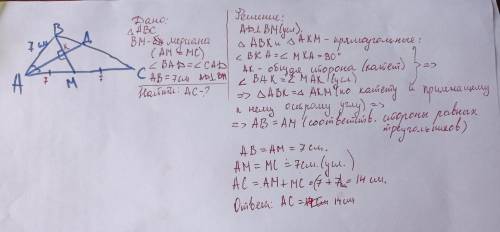 B
7см
A
K
A
M
C
Дано:
△ABC
BM - медиана
(AM = MC)
∠BAD = ∠CAD
AB = 7см AD⊥BM
Найти: AC - ?
Решение:
AD⊥BM (усл).
△ABK и △AKM - прямоугольные:
∠BKA = ∠MKA = 90°
AK - общая сторона (катет)
∠BAK = ∠MAK (усл)
} =>
=> △ABK = △AKM (по катету и прилежащему
к нему острому углу) =>
=> AB = AM (соответств. стороны равных
треугольников)
AB = AM = 7 см.
AM = MC = 7см. (усл.)
AC = AM + MC = (7 + 7) = 14 см.
Ответ: AC = 14 см